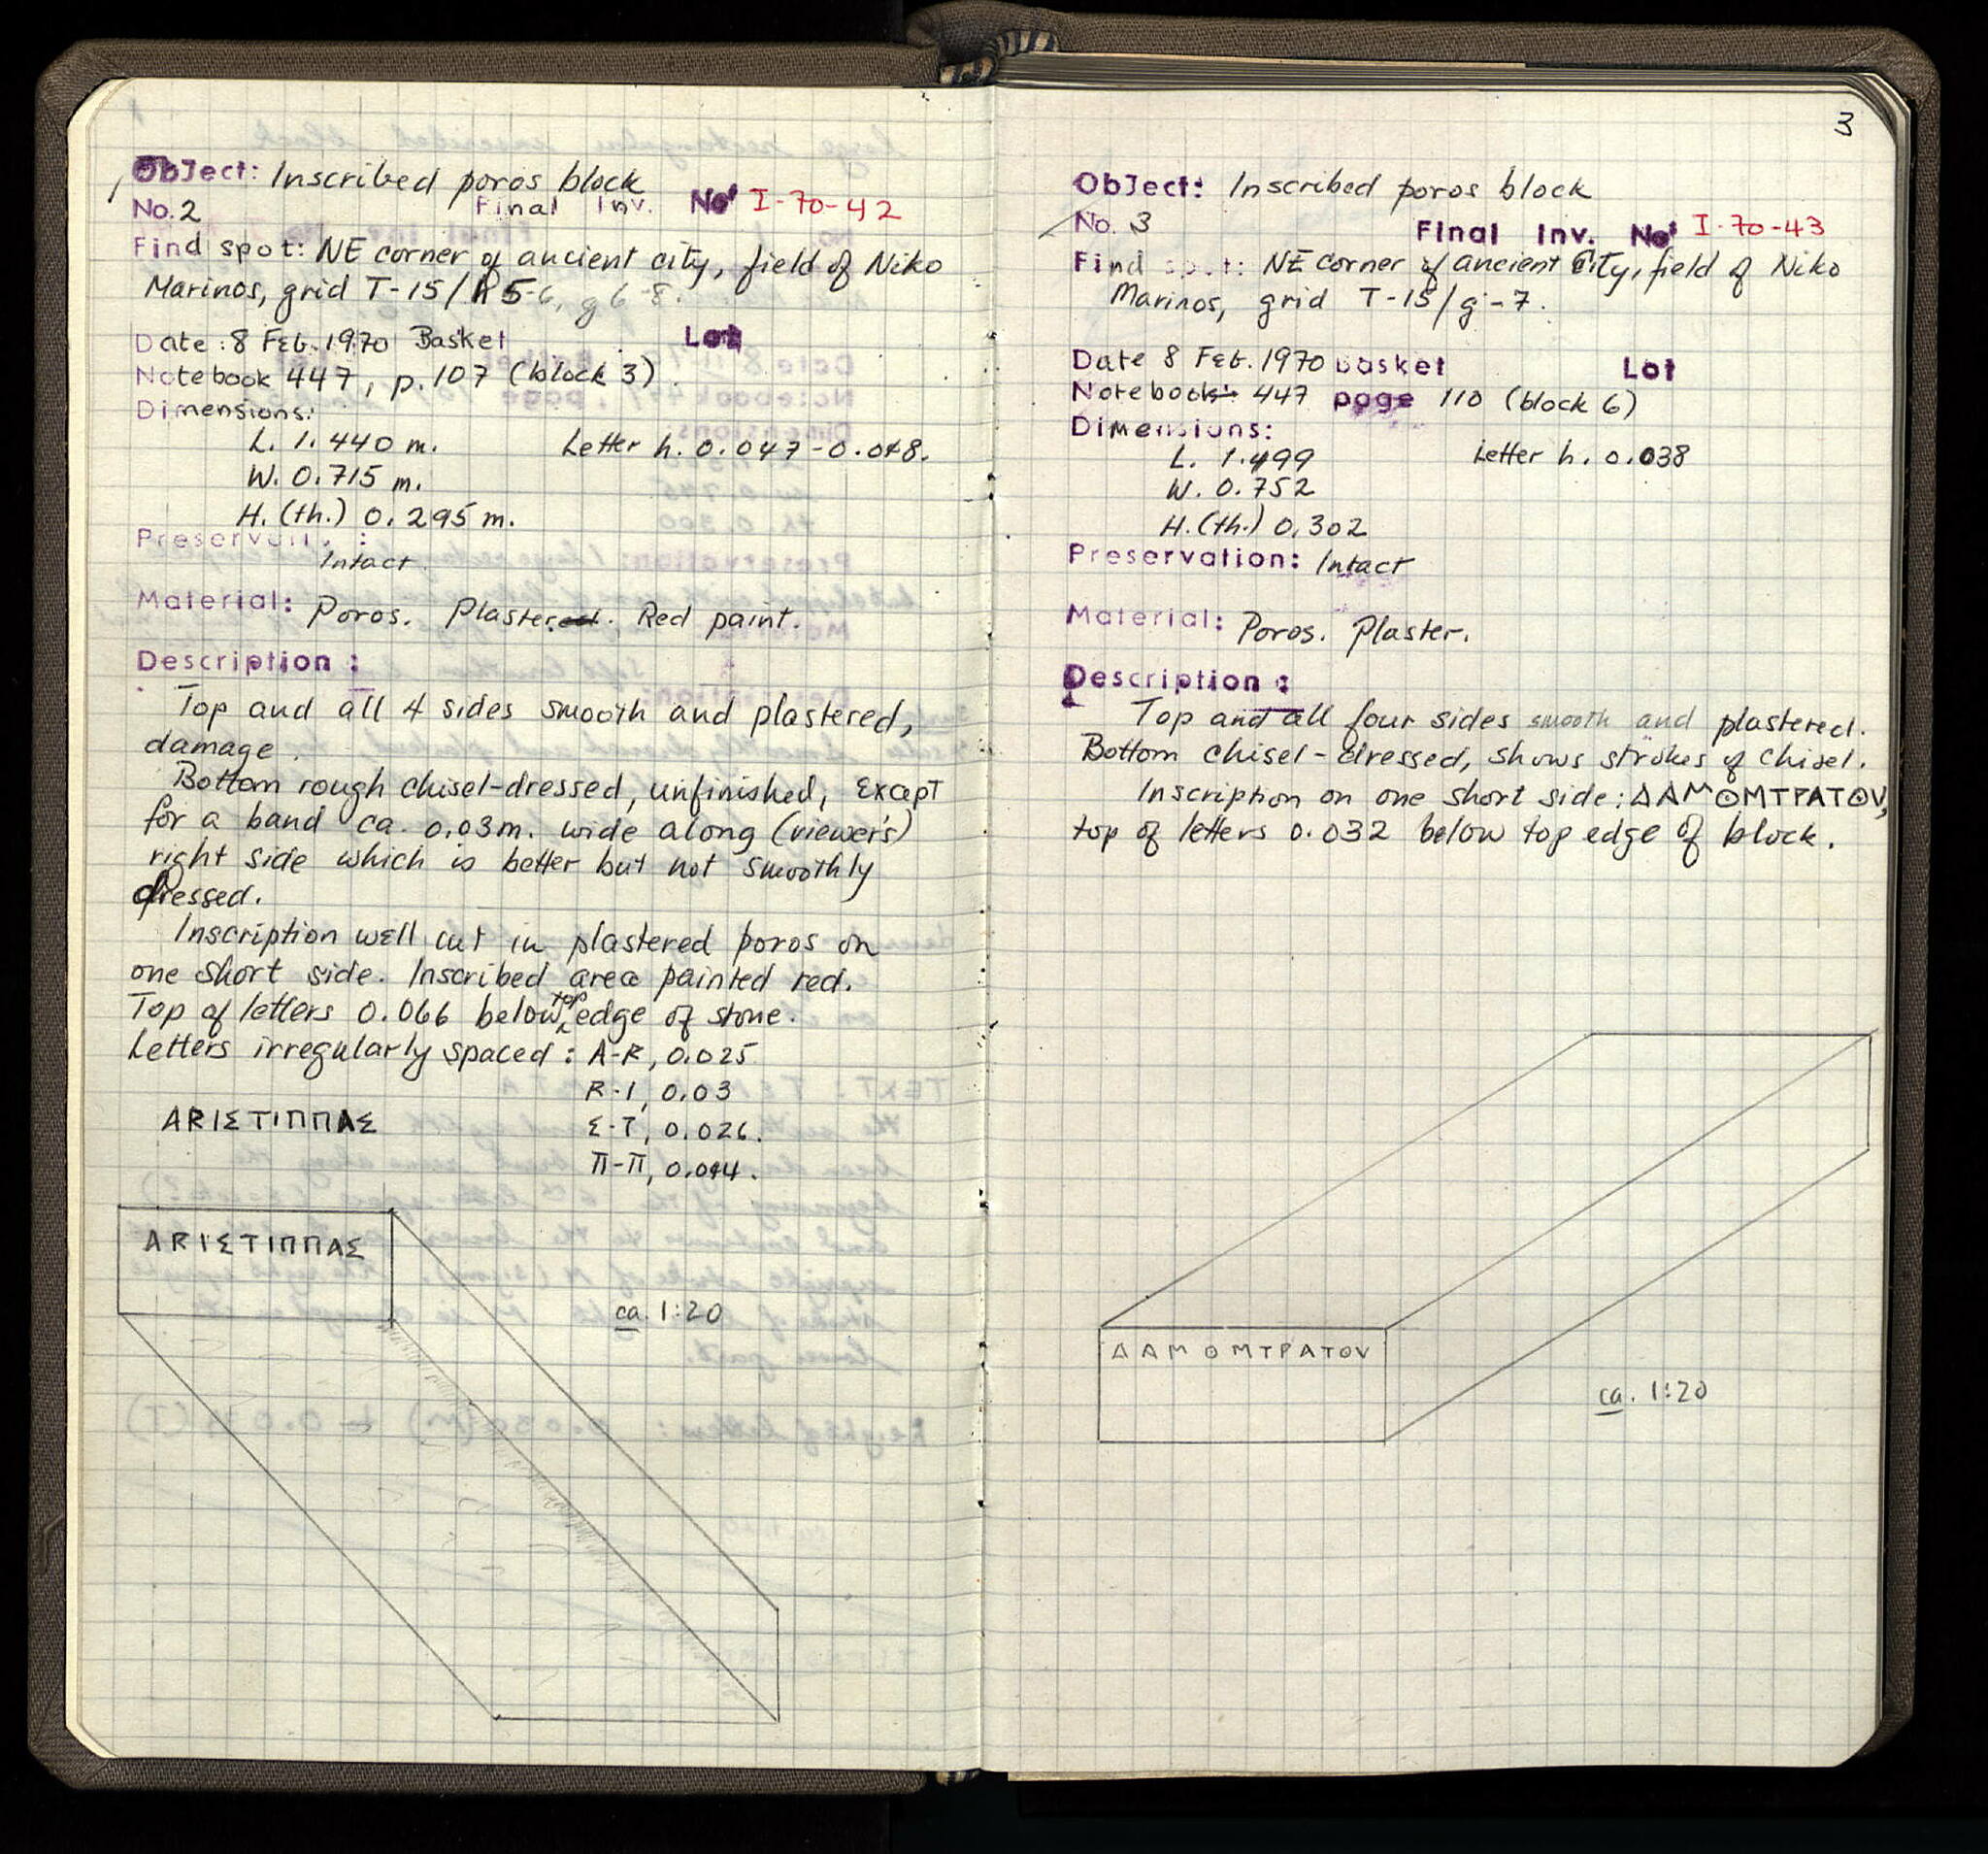 Object: Inscribed poros block
No. 2 Final Inv. No I-70-42
Find spot: NE corner of ancient city, field of Niko
Marinos, grid T-15/ 5-6, g 6-8.
Date: 8 Feb. 1970 Basket Lot
Notebook 447, p. 107 (block 3)
Dimensions:
L. 1.440 m. Letter h. 0.047-0.048.
W. 0.715 m.
H. (th.) 0.295 m.
Intact
Material: Poros. Plaster. Red paint.
Description:
Top and all 4 sides smooth and plastered,
damage.
Bottom rough chisel-dressed, unfinished, except
for a band ca. 0.03m. wide along (viewer's)
right side which is better but not smoothly
dressed.
Inscription well cut in plastered poros on
one short side. Inscribed area painted red.
Top of letters 0.066 below top edge of stone.
Letters irregularly spaced: A-R, 0.025
R-I, 0.03
ΑRΙΣΤΙΠΠΑΣ Σ-Τ, 0.026.
Π-Π, 0.044.
ΑRΙΣΤΙΠΠΑΣ
ca. 1:20
3
Object: Inscribed poros block
No. 3 Final Inv. No I-70-43
Find spot: NE corner of ancient City, field of Niko
Marinos, grid T-15/g-7.
Date 8 Feb. 1970 Basket Lot
Notebook 447 page 110 (block 6)
Dimensions:
L. 1.499 Letter h. 0.038
W. 0.752
H. (th.) 0.302
Preservation: Intact
Material: Poros. Plaster.
Description:
Top and all four sides smooth and plastered.
Bottom chisel-dressed, shows strokes of chisel.
Inscription on one short side: ΔΑΜΟΜΤΡΑΤΟV,
top of letters 0.032 below top edge of block.
ΔΑΜΟΜΤΡΑΤΟV
ca. 1:20